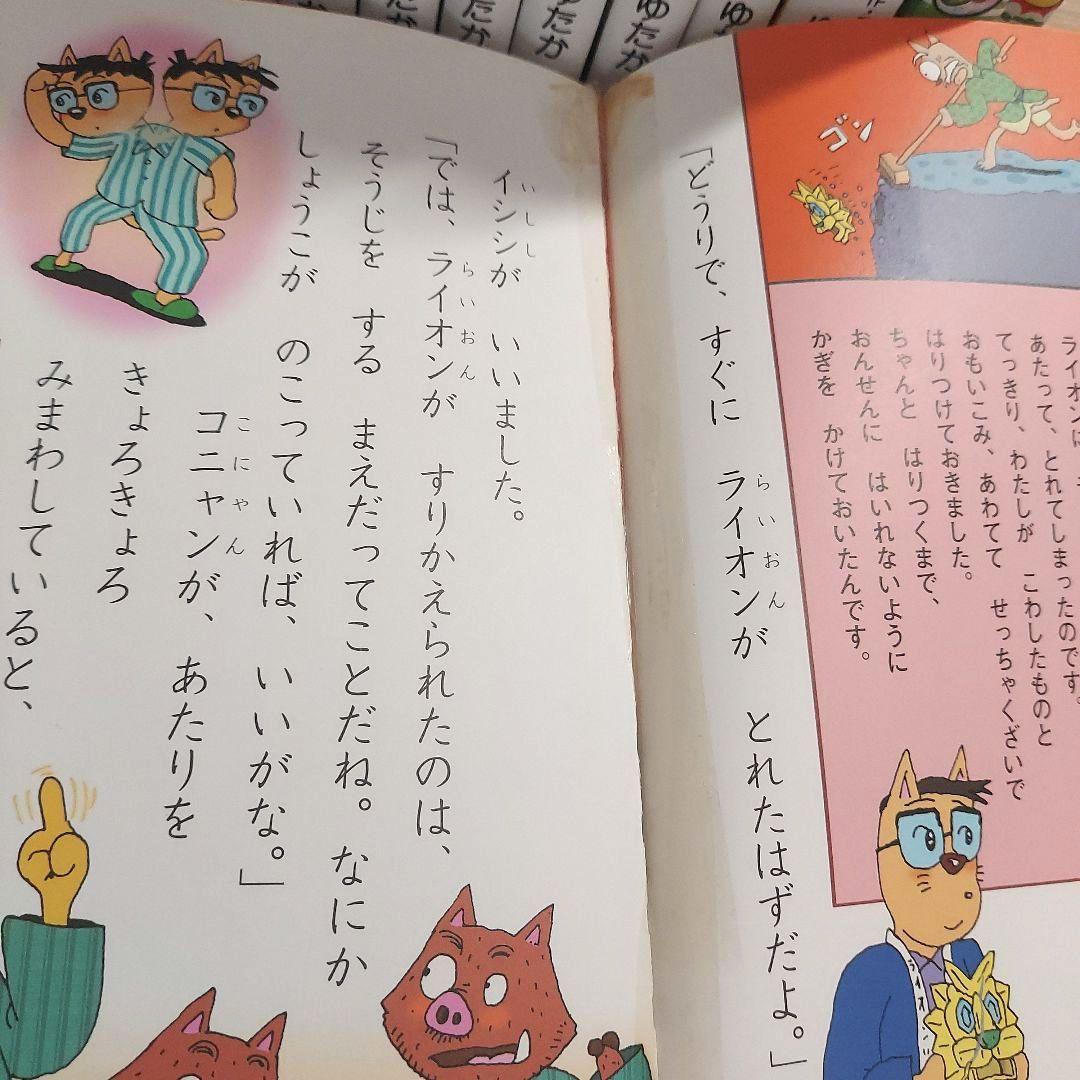 ゆたか
ゆたか
ゴン
あたって、とれてしまったのです。
てっきり、わたしが こわしたものと
おもいこみ、あわてて せっちゃくざいで
はりつけておきました。
ちゃんと はりつくまで、
おんせんに はいれないように
かぎを かけておいたんです。
「どうりで、すぐに ライオンが とれたはずだよ。」
らいおん
イシシが いいました。
いしし
「では、ライオンが すりかえられたのは、
らいおん
そうじを する まえだってことだね。なにか
しょうこが のこっていれば、いいがな。」
コニャンが、あたりを
こにゃん
きょろきょろ
みまわしていると、